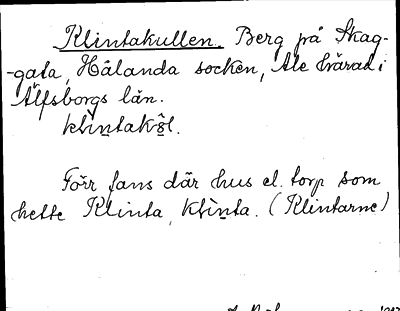 Klintakullen. Berg på Skag-
-gata, Hålanda socken, Ale härad i
Älfsborgs län.
Förr fans där hus el. torp som
hette Klinta, (Klintarne)